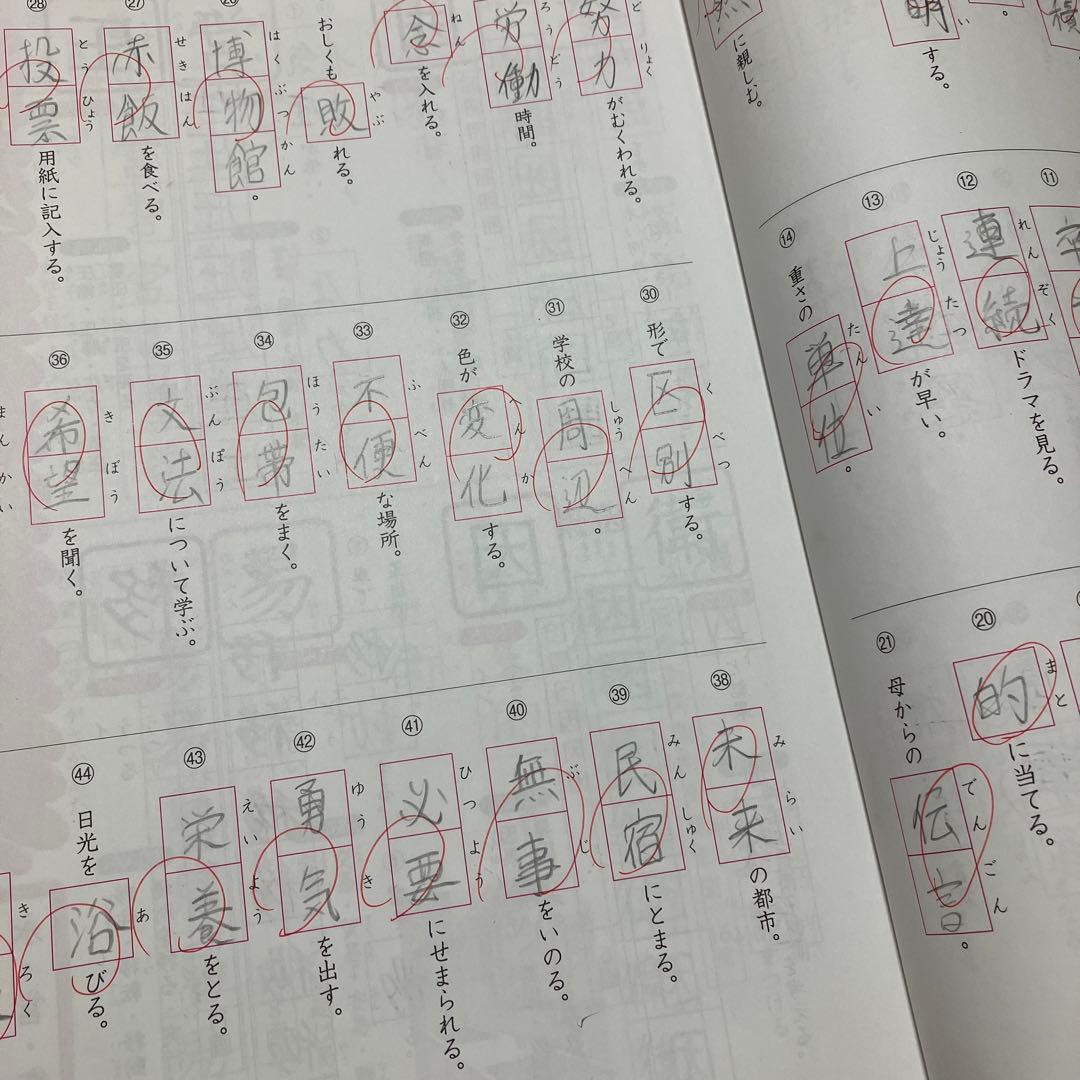 明する。
い
に親しむ。
⑪
⑫ 連続ドラマを見る。
れんぞく
⑬ 上達が早い。
じょうたつ
⑭ 重さの単位。
たんい
⑳ 的に当てる。
まと
㉑ 母からの伝言。
でんごん
努力がむくわれる。
どりょく
労働時間。
ろうどう
念を入れる。
ねん
おしくも敗れる。
やぶ
博物館。
はくぶつかん
㉗ 赤飯を食べる。
せきはん
㉘ 投票用紙に記入する。
とうひょう
㉚ 形で区別する。
くべつ
㉛ 学校の周辺。
しゅうへん
㉜ 色が変化する。
へんか
㉝ 不便な場所。
ふべん
㉞ 包帯をまく。
ほうたい
㉟ 文法について学ぶ。
ぶんぽう
㊱ 希望を聞く。
きぼう
まんかい
㊳ 未来の都市。
みらい
㊴ 民宿にとまる。
みんしゅく
㊵ 無事をいのる。
ぶじ
㊶ 必要にせまられる。
ひつよう
㊷ 勇気を出す。
ゆうき
㊸ 栄養をとる。
えいよう
㊹ 日光を浴びる。
あ
きろく